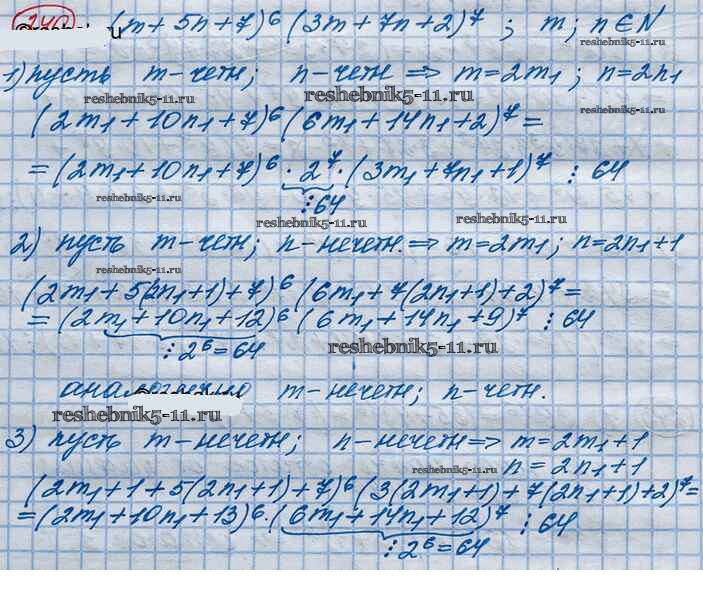 240 (m + 5n + 7)⁶ (3m + 7n + 2)⁷ ; m; n ∈ N
reshebnik5-11.ru
1) пусть m - четн; n - четн ⇒ m = 2m₁ ; n = 2n₁
reshebnik5-11.ru reshebnik5-11.ru reshebnik5-11.ru
(2m₁ + 10n₁ + 7)⁶ (6m₁ + 14n₁ + 2)⁷ =
= (2m₁ + 10n₁ + 7)⁶ · 2⁷ · (3m₁ + 7n₁ + 1)⁷ ⋮ 64
reshebnik5-11.ru ⋮ 64
reshebnik5-11.ru reshebnik5-11.ru
2) пусть m - четн; n - нечетн. ⇒ m = 2m₁ ; n = 2n₁ + 1
reshebnik5-11.ru
(2m₁ + 5(2n₁ + 1) + 7)⁶ (6m₁ + 7(2n₁ + 1) + 2)⁷ =
= (2m₁ + 10n₁ + 12)⁶ (6m₁ + 14n₁ + 9)⁷ ⋮ 64
⋮ 2⁶ = 64 reshebnik5-11.ru
m - нечетн; n - четн.
reshebnik5-11.ru
3) пусть m - нечетн; n - нечетн ⇒ m = 2m₁ + 1
reshebnik5-11.ru n = 2n₁ + 1
(2m₁ + 1 + 5(2n₁ + 1) + 7)⁶ (3(2m₁ + 1) + 7(2n₁ + 1) + 2)⁷ =
= (2m₁ + 10n₁ + 13)⁶ · (6m₁ + 14n₁ + 12)⁷ ⋮ 64
⋮ 2⁶ = 64